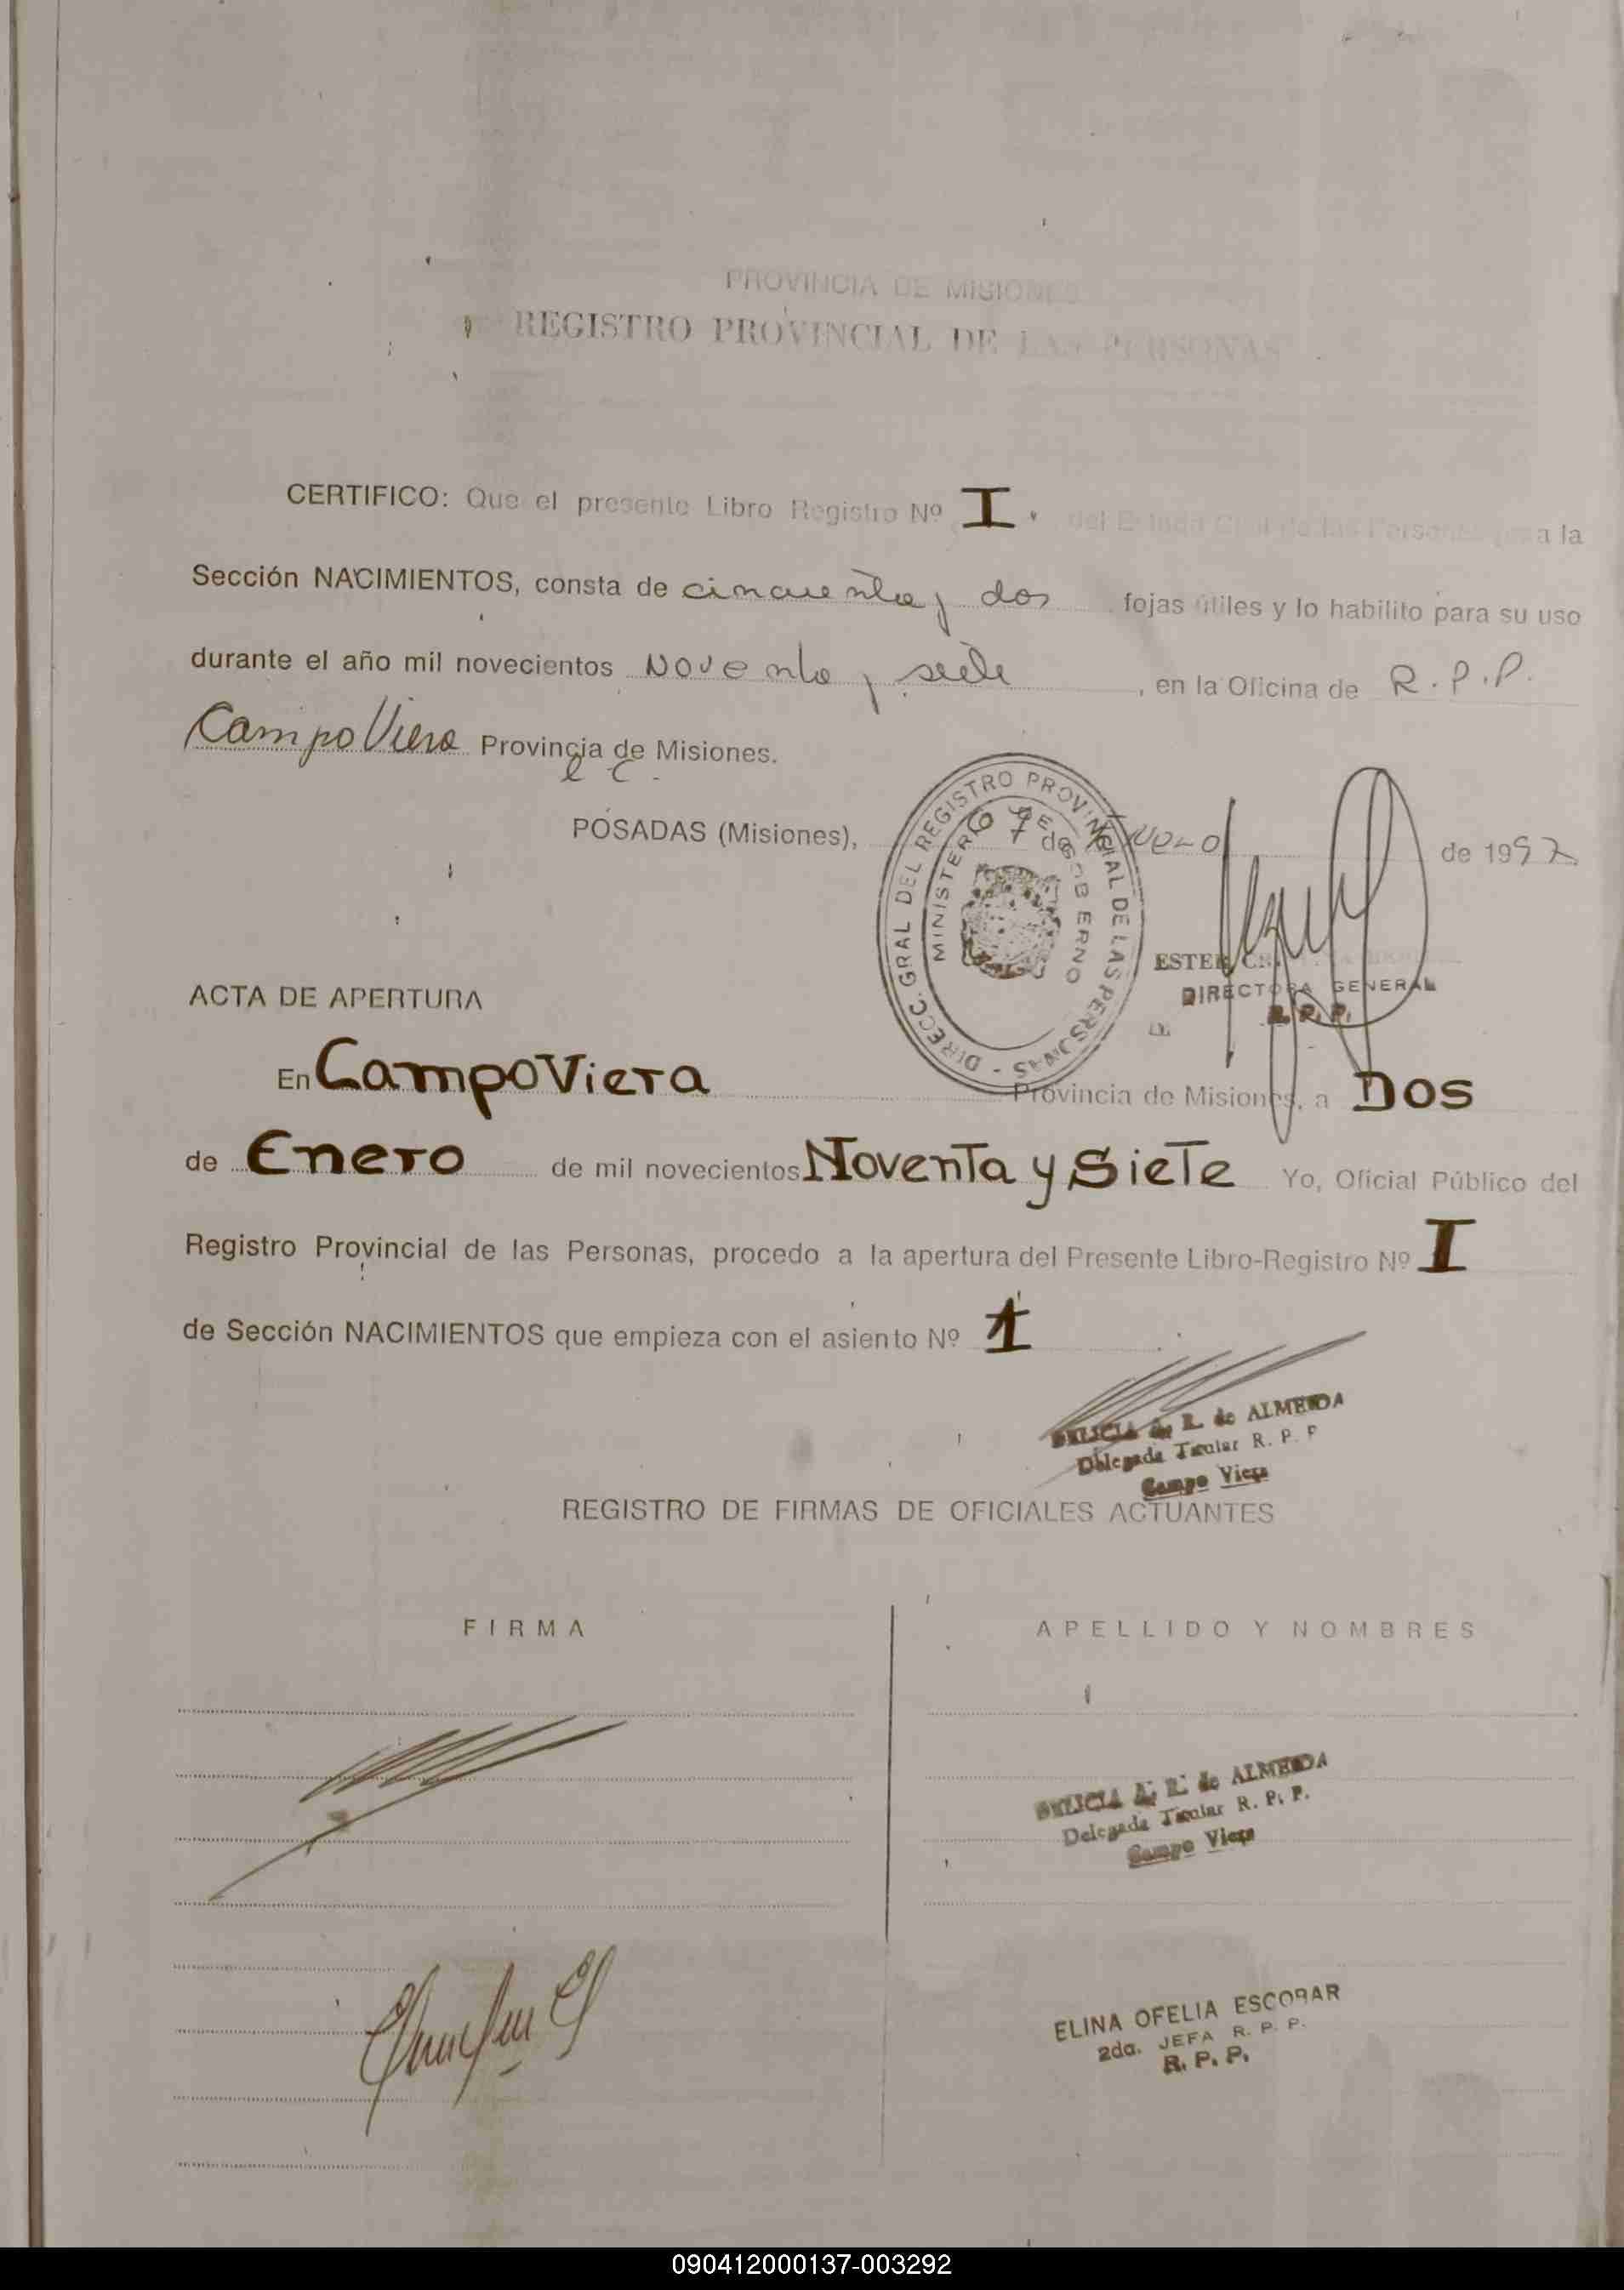 PROVINCIA DE MISIONES
REGISTRO PROVINCIAL DE LAS PERSONAS
CERTIFICO: Que el presente Libro Registro Nº I. del Estado Civil de las Personas para la
Sección NACIMIENTOS, consta de cincuenta y dos fojas útiles y lo habilito para su uso
durante el año mil novecientos Noventa y siete, en la Oficina de R.P.P.
Campo Viera Provincia de Misiones.
POSADAS (Misiones), 07 de Enero de 1997
DIRECC. GRAL DEL REGISTRO PROVINCIAL DE LAS PERSONAS -
MINISTERIO DE GOBIERNO
ESTER
DIRECTORA GENERAL
R. P. P.
ACTA DE APERTURA
En Campo Viera Provincia de Misiones, a Dos
de Enero de mil novecientos Noventa y Siete Yo, Oficial Público del
Registro Provincial de las Personas, procedo a la apertura del Presente Libro-Registro Nº I
de Sección NACIMIENTOS que empieza con el asiento Nº 1
R. de ALMEIDA
Delegada Titular R. P. P
Campo Viera
REGISTRO DE FIRMAS DE OFICIALES ACTUANTES
FIRMA APELLIDO Y NOMBRES
R. de ALMEIDA
Delegada Titular R. P. P.
Campo Viera
ELINA OFELIA ESCOBAR
2da. JEFA R. P. P.
R. P. P.
090412000137-003292